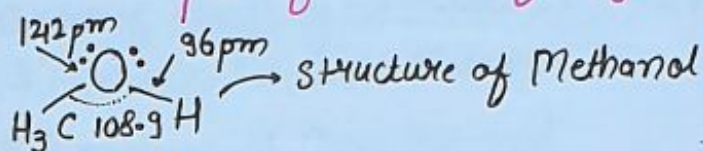 1212pm
96pm
O
structure of Methanol
H3C 108.9 H